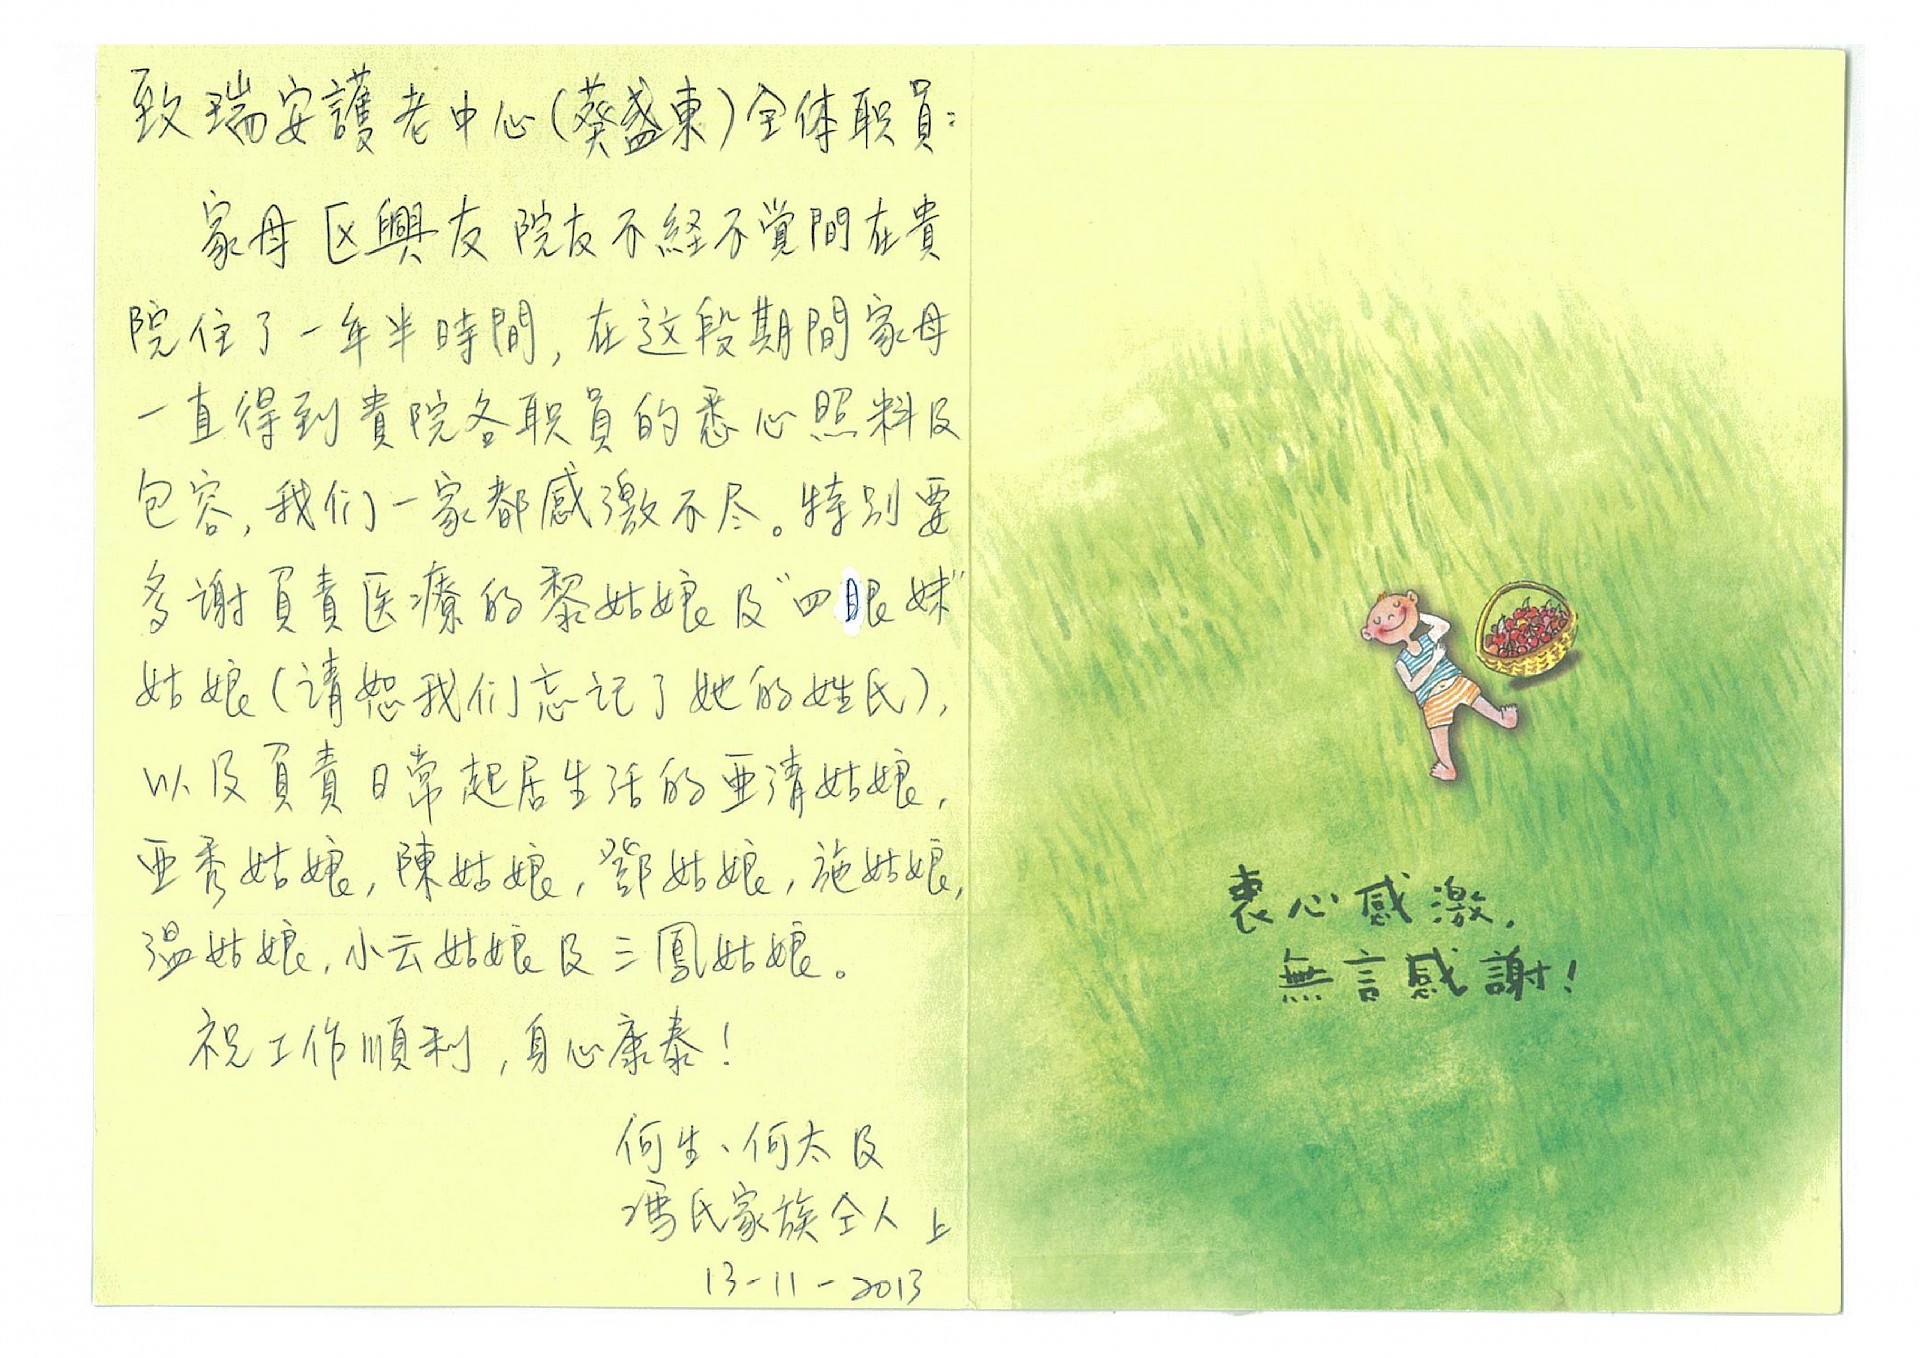 致瑞安護老中心(葵盛東)全体职員:
家母区興友院友不経不覚間在貴
院住了一年半時間,在这段期間家母
一直得到貴院各职員的悉心照料及
包容,我们一家都感激不尽。特別要
多謝負責医療的黎姑娘及"四眼妹"
姑娘(请恕我们忘记了她的姓氏),
以及負責日常起居生活的亜清姑娘,
亜秀姑娘,陳姑娘,鄧姑娘,施姑娘,
温姑娘,小云姑娘及三鳳姑娘。
祝工作順利,身心康泰!
何生、何太及
馮氏家族仝人 上
13-11-2013
衷心感激,
無言感謝!